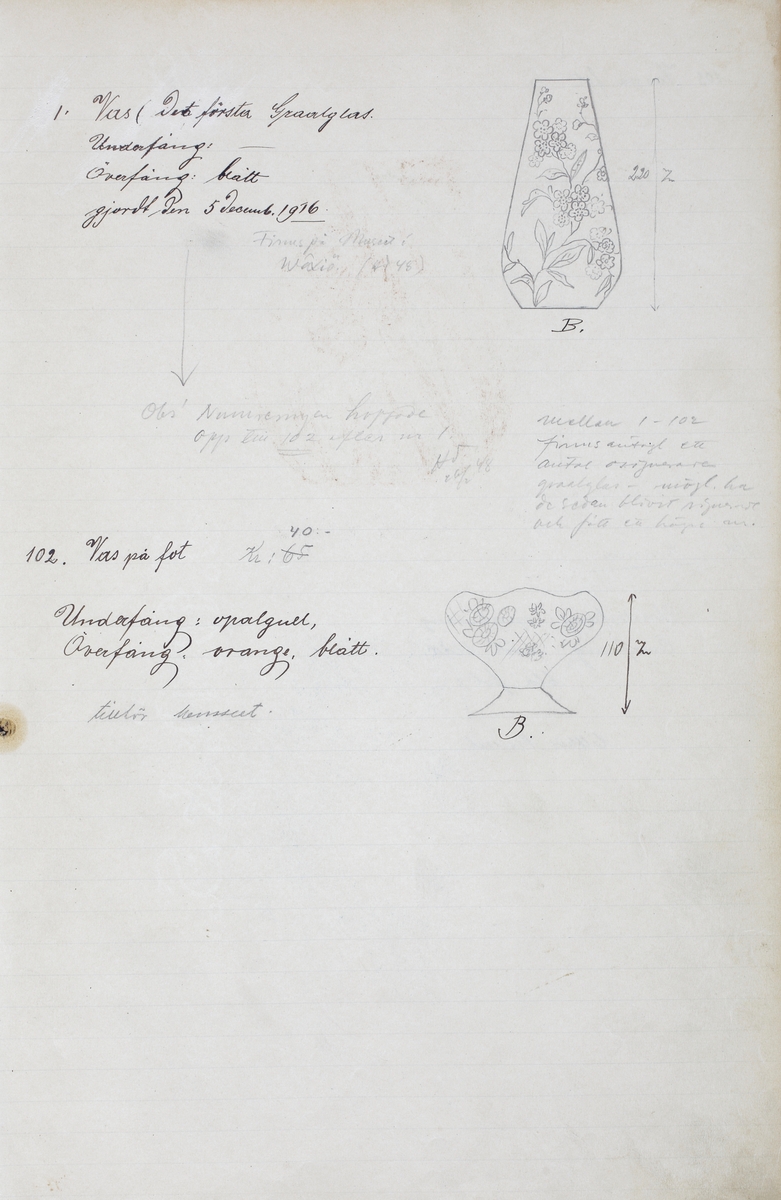 1. Vas ( Det första Graalglas.
Underfång: —
Överfång: blått
gjordt den 5 decemb. 1916.
220
B.
Finns på Museet i
Wäxiö,
Obs! Numreringen hoppade
opp till 102 efter nr 1.
mellan 1 - 102
finns antagl ett
antal osignerade
graalglas - mögl. ha
de sedan blivit signerade
och fått en höge nr.
40:-
102. Vas på fot Kr: 65
Underfång: opalgult,
Överfång: orange, blått.
110
B.
tillhör museet.